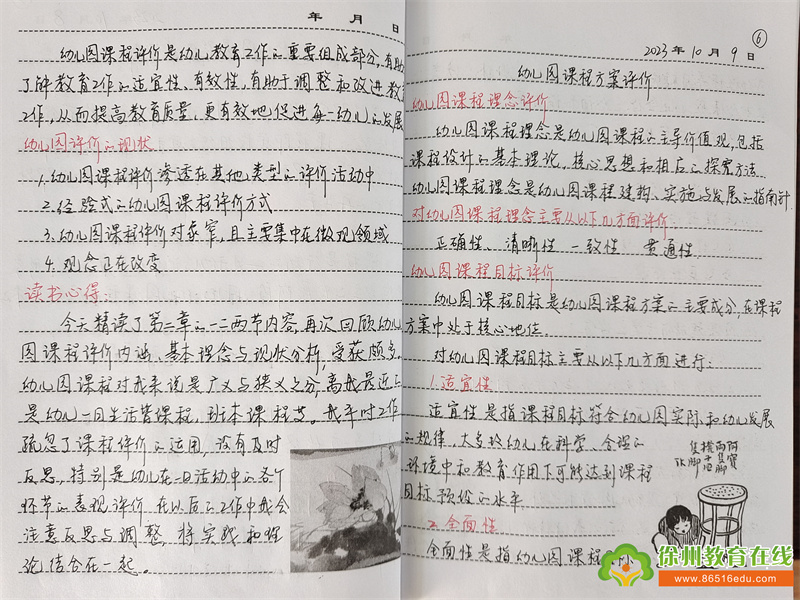 年 月 日
幼儿园课程评价是幼儿教育工作的重要组成部分,有助
了解教育工作的适宜性、有效性,有助于调整和改进教
工作,从而提高教育质量,更有效地促进每一幼儿的发展
幼儿园评价的现状
1.幼儿园课程评价渗透在其他类型的评价活动中
2.经验式的幼儿园课程评价方式
3.幼儿园课程评价对象窄,且主要集中在微观领域
4.观念正在改变
读书心得:
今天精读了第三章的一二两节内容,再次回顾幼儿
园课程评价内涵、基本理念与现状分析,受获颇多。
幼儿园课程对我来说是广义与狭义之分,离我最近的
是幼儿一日生活皆课程,班本课程等。我平时工作
疏忽了课程评价的运用,没有及时
反思,特别是幼儿在一日活动中的各个
环节的表现评价,在以后的工作中我会
注意反思与调整,将实践和理
论结合在一起。
⑥
2023年10月9日
幼儿园课程方案评价
幼儿园课程理念评价
幼儿园课程理念是幼儿园课程的主导价值观,包括
课程设计的基本理论,核心思想和相应的探究方法
幼儿园课程理念是幼儿园课程建构、实施与发展的指南针.
对幼儿园课程理念主要从以下几方面评价
正确性、清晰性 一致性 贯通性
幼儿园课程目标评价
幼儿园课程目标是幼儿园课程方案的主要成分,在课程
方案中处于核心地位。
对幼儿园课程目标主要从以下几方面进行:
1.适宜性
适宜性是指课程目标符合幼儿园实际和幼儿发展
的规律,大多数幼儿在科学、合理的
环境中和教育作用下可能达到课程
目标预设的水平
2.全面性
全面性是指幼儿园课程目标
徐州教育在线
www.86516edu.com